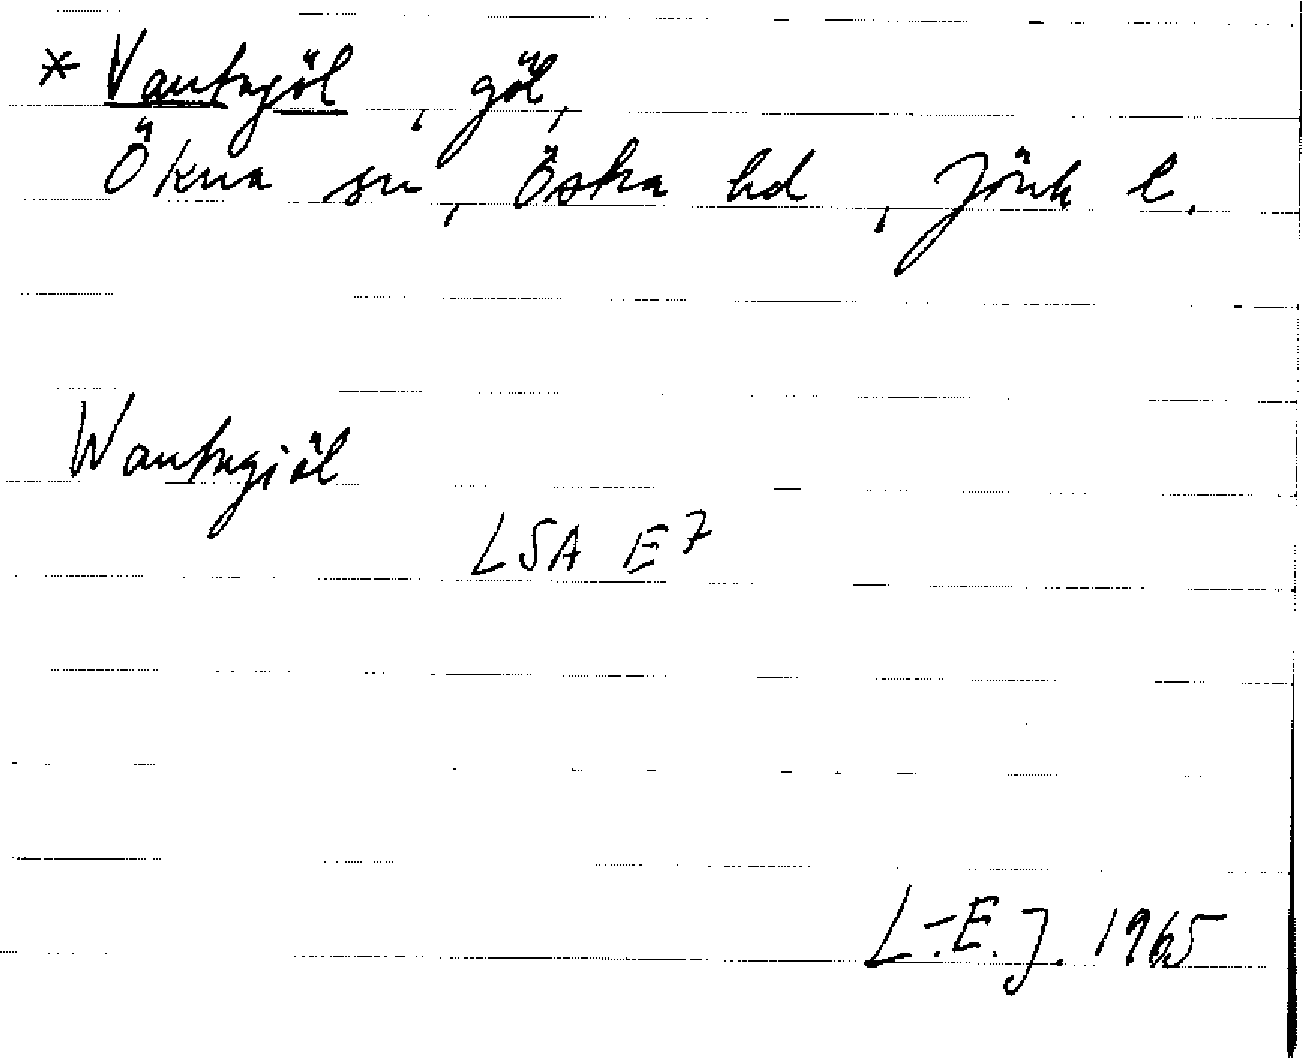 * Vantegöl, göl,
Ökna sn, Östra hd, Jönk l.
Wantegiöl
LSA E7
L.-E. J. 1965